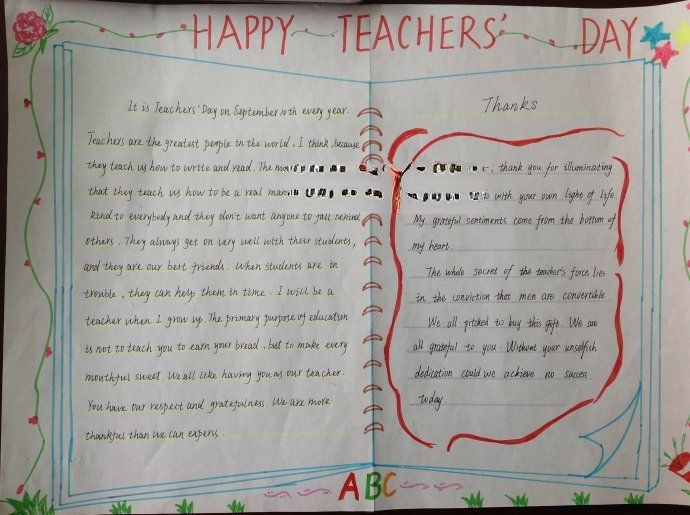 HAPPY TEACHERS' DAY
It is Teachers' Day on September 10th every year.
Teachers are the greatest people in the world, I think, because
they teach us how to write and read. The
that they teach us how to be a real man
kind to everybody and they don't want anyone to fall behind
others. They always get on very well with their students,
and they are our best friends. When students are in
trouble, they can help them in time. I will be a
teacher when I grow up. The primary purpose of education
is not to teach you to earn your bread, but to make every
mouthful sweet. We all like having you as our teacher.
You have our respect and gratefulness. We are more
thankful than we can experss.
Thanks
, thank you for illuminating
with your own light of life.
My grateful sentiments come from the bottom of
my heart.
The whole secret of the teacher's force lies
in the conviction that men are convertible
We all pitched to buy this gift. We are
all grateful to you. Without your unselfish
dedication could we achieve no sucess
today.
ABC